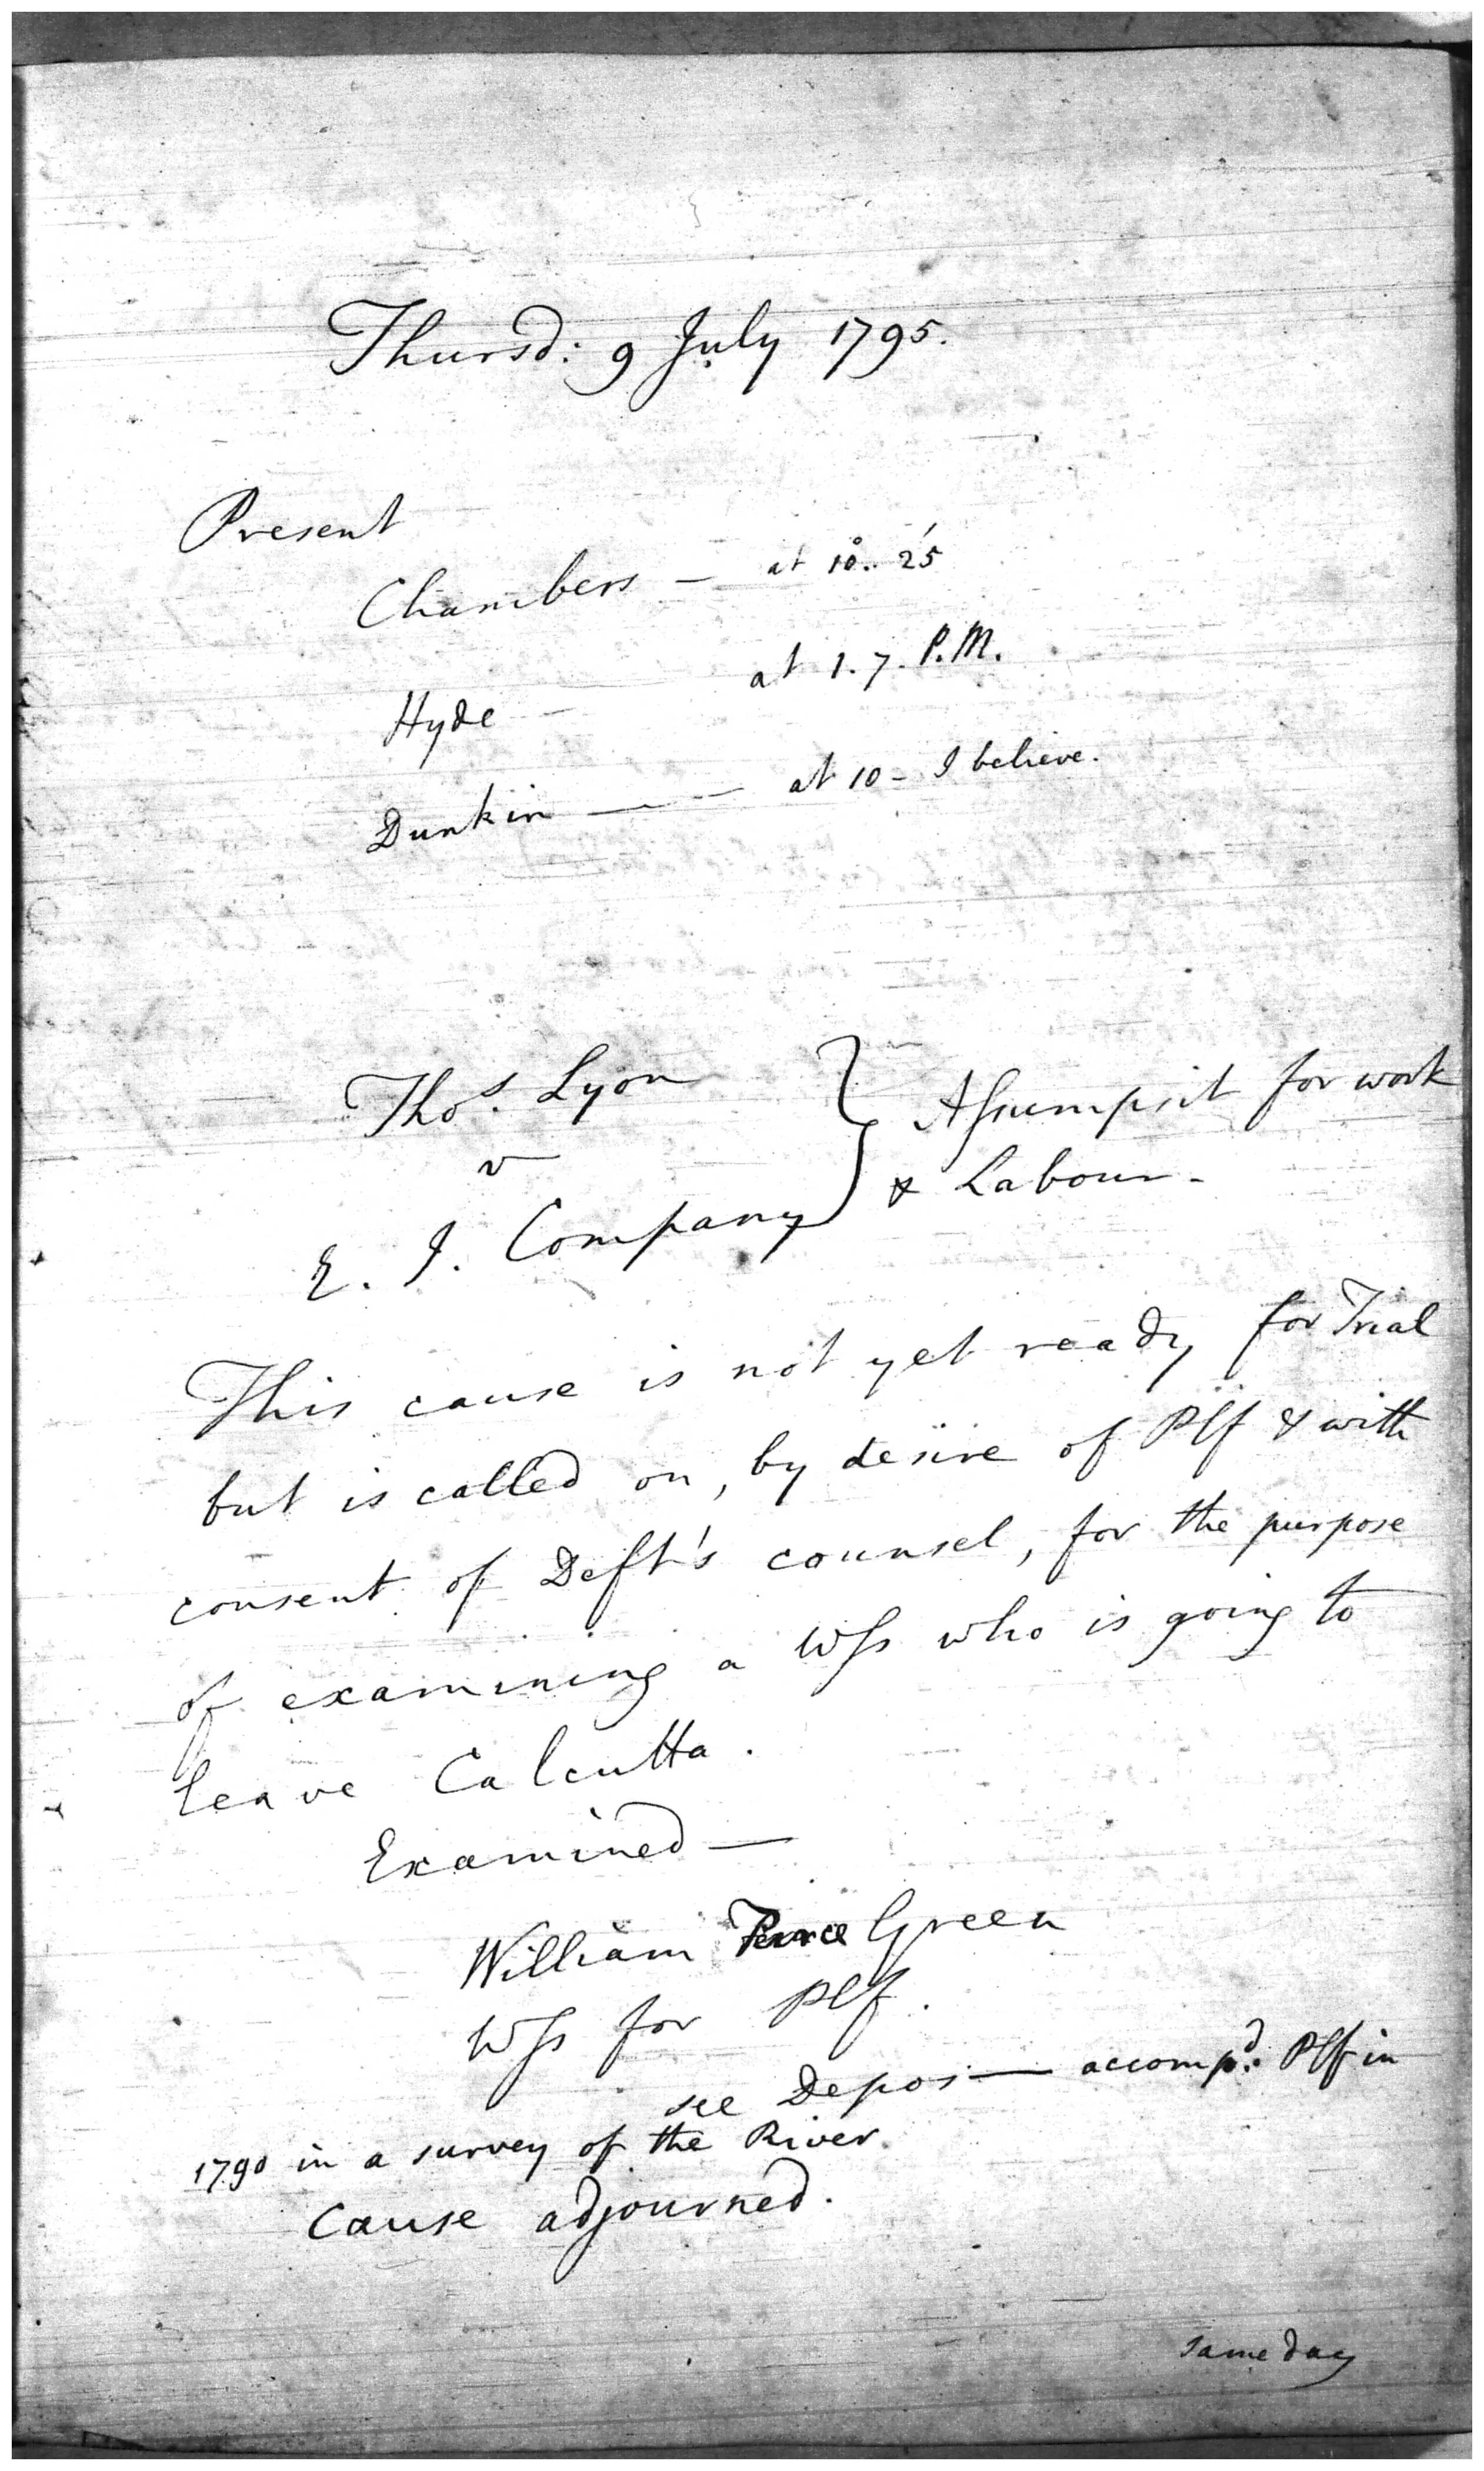 Thursd: 9 July 1795.
Present
Chambers — at 10°.. 25'
Hyde — at 1. 7. P.M.
Dunkin — — at 10 - I believe.
Thos. Lyon
v
E. I. Company } Assumpsit for work
& Labour -
This cause is not yet ready for Trial
but is called on, by desire of Plf & with
consent of Deft's counsel, for the purpose
of examining a Wss who is going to
leave Calcutta.
Examined —
William Green
Wss for Plf.
see Depos — accompd: Plf in
1790 in a survey of the River.
Cause adjourned.
same day